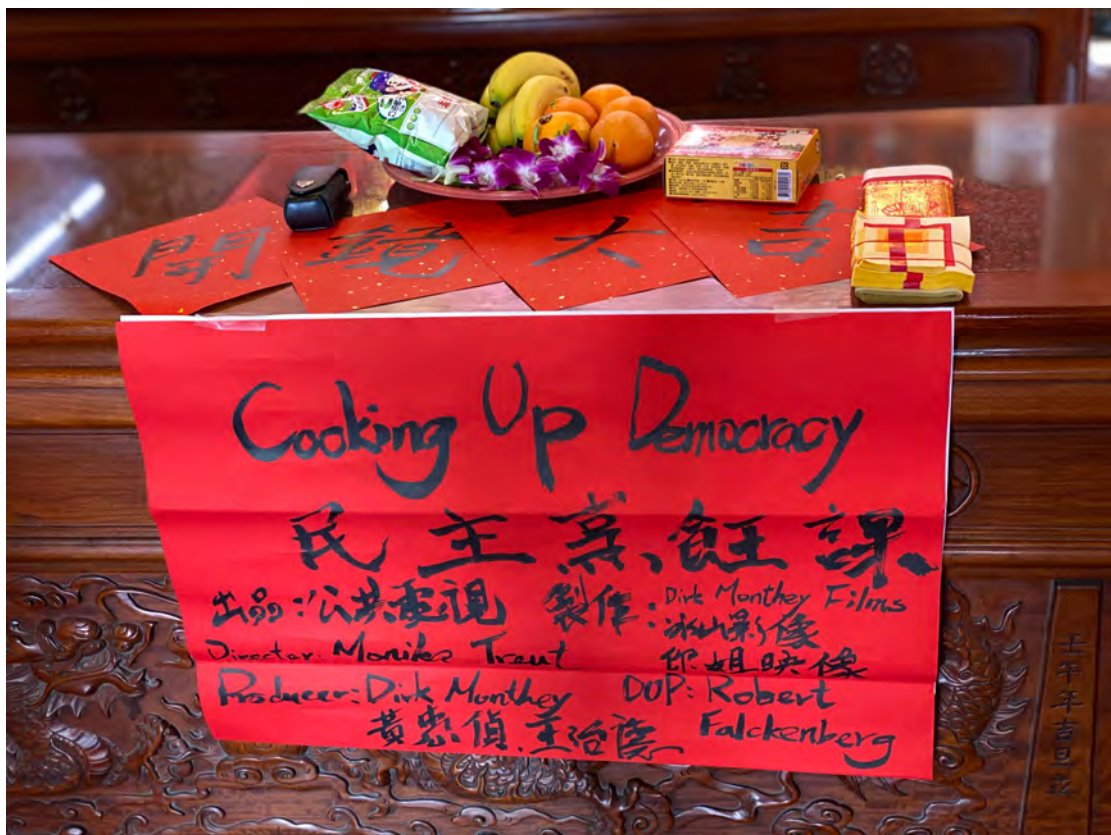 開鏡大吉
Cooking Up Democracy
民主烹飪課
出品:公共電視 製作:Dirk Manthey Films
冰山影像
Director: Monika Treut
Producer: Dirk Manthey DOP: Robert
黃惠偵. Falckenberg
年吉旦立